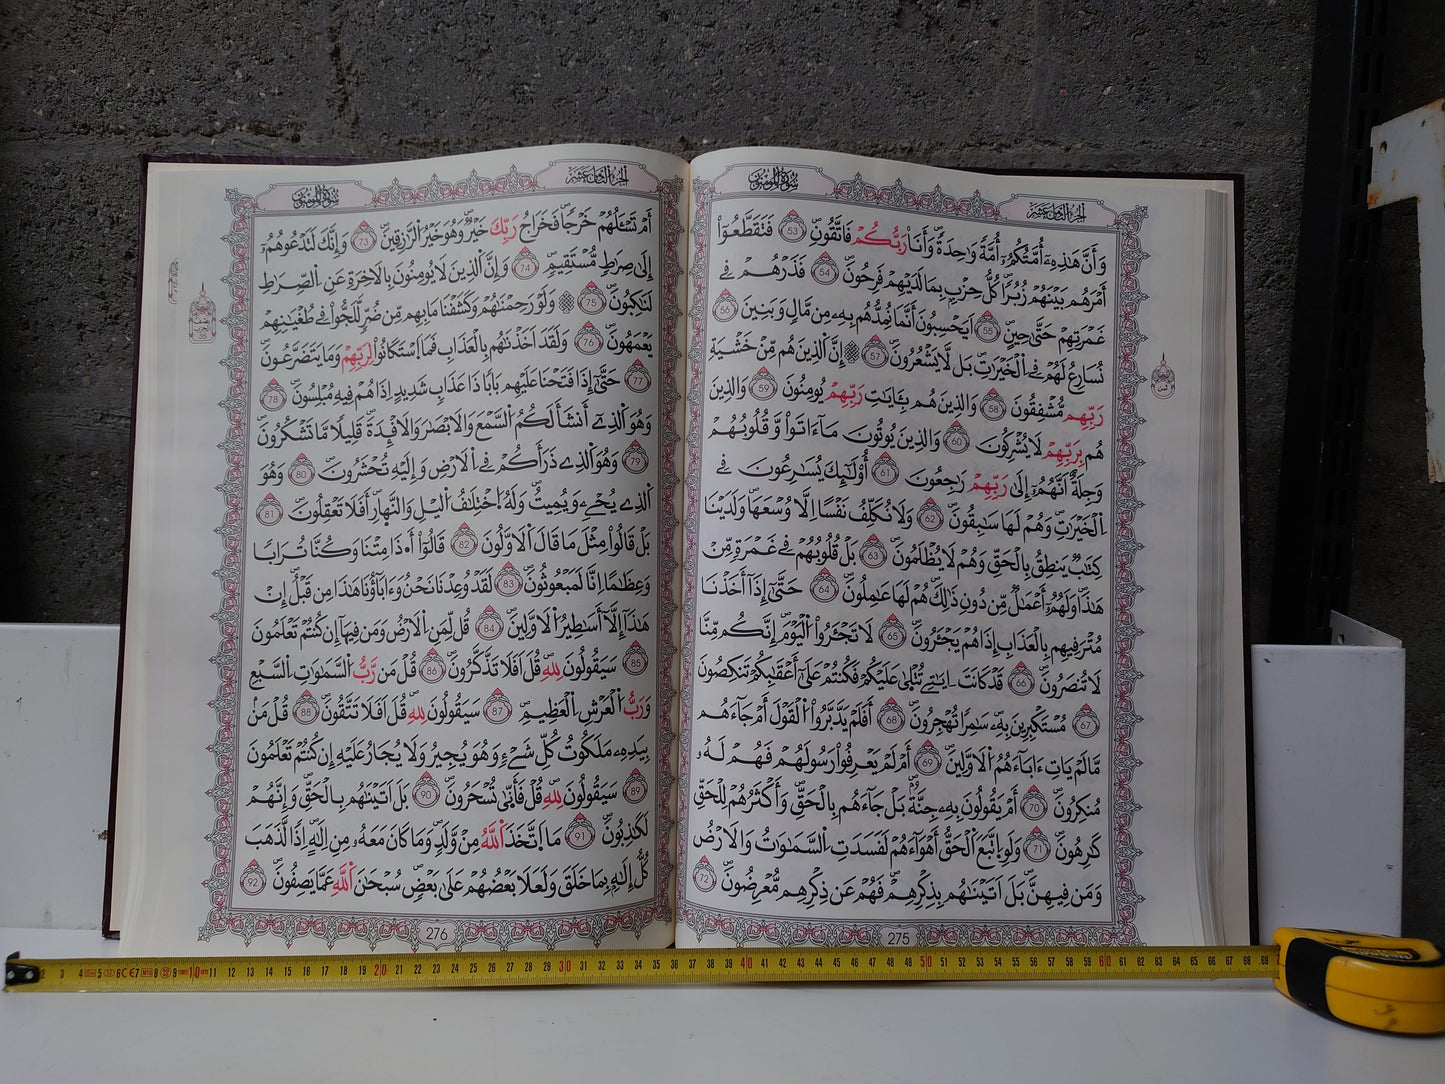 الجزء الثامن عشر
سورة المؤمنون
وَأَنَّ هَٰذِهِۦٓ أُمَّتُكُمُۥٓ أُمَّةً وَٰحِدَةً وَأَنَا رَبُّكُمْ فَاتَّقُونِ 53 فَتَقَطَّعُوٓاْ
أَمْرَهُم بَيْنَهُمْ زُبُرًا كُلُّ حِزْبٍ بِمَا لَدَيْهِمْ فَرِحُونَ 54 فَذَرْهُمْ فِي
غَمْرَتِهِمْ حَتَّىٰ حِينٍ 55 اَيَحْسِبُونَ أَنَّمَا نُمِدُّهُم بِهِۦ مِن مَّالٍ وَبَنِينَ 56
نُسَارِعُ لَهُمْ فِي اِلْخَيْرَٰتِ بَل لَّا يَشْعُرُونَ 57 إِنَّ اَلذِينَ هُم مِّنْ خَشْيَةِ
رَبِّهِم مُّشْفِقُونَ 58 وَالذِينَ هُم بِـَٔايَٰتِ رَبِّهِمْ يُومِنُونَ 59 وَالذِينَ
هُم بِرَبِّهِمْ لَا يُشْرِكُونَ 60 وَالذِينَ يُوتُونَ مَآ ءَاتَواْ وَّقُلُوبُهُمْ
وَجِلَةٌ اَنَّهُمُۥٓ إِلَىٰ رَبِّهِمْ رَٰجِعُونَ 61 أُوْلَٰٓئِكَ يُسَٰرِعُونَ فِي
اِلْخَيْرَٰتِ وَهُمْ لَهَا سَٰبِقُونَ 62 وَلَا نُكَلِّفُ نَفْسًا اِلَّا وُسْعَهَا وَلَدَيْنَا
كِتَٰبٌ يَنطِقُ بِالْحَقِّ وَهُمْ لَا يُظْلَمُونَ 63 بَلْ قُلُوبُهُمْ فِي غَمْرَةٍ مِّنْ
هَٰذَا وَلَهُمُۥٓ أَعْمَٰلٌ مِّن دُونِ ذَٰلِكَ هُمْ لَهَا عَٰمِلُونَ 64 حَتَّىٰٓ إِذَآ أَخَذْنَا
مُتْرَفِيهِم بِالْعَذَابِ إِذَا هُمْ يَجْـَٔرُونَ 65 لَا تَجْـَٔرُواْ اُلْيَوْمَ إِنَّكُم مِّنَّا
لَا تُنصَرُونَ 66 قَدْ كَانَتَ اٰيَٰتِي تُتْلَىٰ عَلَيْكُمْ فَكُنتُمْ عَلَىٰٓ أَعْقَٰبِكُمْ تَنكِصُونَ
67 مُسْتَكْبِرِينَ بِهِۦ سَٰمِرًا تُهْجِرُونَ 68 أَفَلَمْ يَدَّبَّرُواْ اُلْقَوْلَ أَمْ جَآءَهُم
مَّا لَمْ يَاتِ ءَابَآءَهُمُ اُلَاوَّلِينَ 69 أَمْ لَمْ يَعْرِفُواْ رَسُولَهُمْ فَهُمْ لَهُۥ
مُنكِرُونَ 70 أَمْ يَقُولُونَ بِهِۦ جِنَّةٌ بَلْ جَآءَهُم بِالْحَقِّ وَأَكْثَرُهُمْ لِلْحَقِّ
كَٰرِهُونَ 71 وَلَوِ اِتَّبَعَ اَلْحَقُّ أَهْوَآءَهُمْ لَفَسَدَتِ اِلسَّمَٰوَٰتُ وَالَارْضُ
وَمَن فِيهِنَّ بَلَ اَتَيْنَٰهُم بِذِكْرِهِمْ فَهُمْ عَن ذِكْرِهِم مُّعْرِضُونَ 72
ثمن
275
الجزء الثامن عشر
سورة المؤمنون
أَمْ تَسْـَٔلُهُمْ خَرْجًا فَخَرَاجُ رَبِّكَ خَيْرٌ وَهُوَ خَيْرُ اُلرَّٰزِقِينَ 73 وَإِنَّكَ لَتَدْعُوهُمُۥٓ
إِلَىٰ صِرَٰطٍ مُّسْتَقِيمٍ 74 وَإِنَّ اَلذِينَ لَا يُومِنُونَ بِالَاخِرَةِ عَنِ اِلصِّرَٰطِ
لَنَٰكِبُونَ 75 وَلَوْ رَحِمْنَٰهُمْ وَكَشَفْنَا مَا بِهِم مِّن ضُرٍّ لَّلَجُّواْ فِي طُغْيَٰنِهِمْ
يَعْمَهُونَ 76 وَلَقَدَ اَخَذْنَٰهُم بِالْعَذَابِ فَمَا اَسْتَكَانُواْ لِرَبِّهِمْ وَمَا يَتَضَرَّعُونَ
77 حَتَّىٰٓ إِذَا فَتَحْنَا عَلَيْهِم بَابًا ذَا عَذَابٍ شَدِيدٍ اِذَا هُمْ فِيهِ مُبْلِسُونَ 78
وَهُوَ اَلذِيٓ أَنشَأَ لَكُمُ اُلسَّمْعَ وَالَابْصَٰرَ وَالَافْـِٕدَةَ قَلِيلًا مَّا تَشْكُرُونَ
79 وَهُوَ اَلذِي ذَرَأَكُمْ فِي اِلَارْضِ وَإِلَيْهِ تُحْشَرُونَ 80 وَهُوَ
اَلذِي يُحْيِۦ وَيُمِيتُ وَلَهُ اُخْتِلَٰفُ اُليْلِ وَالنَّهٰارِ أَفَلَا تَعْقِلُونَ 81
بَلْ قَالُواْ مِثْلَ مَا قَالَ اَلَاوَّلُونَ 82 قَالُوٓاْ أَ.ذَا مِتْنَا وَكُنَّا تُرَابًا
وَعِظَٰمًا اِنَّا لَمَبْعُوثُونَ 83 لَقَدْ وُعِدْنَا نَحْنُ وَءَابَآؤُنَا هَٰذَا مِن قَبْلُ إِنْ
هَٰذَآ إِلَّآ أَسَٰطِيرُ اُلَاوَّلِينَ 84 قُل لِّمَنِ اِلَارْضُ وَمَن فِيهَآ إِن كُنتُمْ تَعْلَمُونَ
85 سَيَقُولُونَ لِلهِ قُلَ اَفَلَا تَذَّكَّرُونَ 86 قُلْ مَن رَّبُّ اُلسَّمَٰوَٰتِ اِلسَّبْعِ
وَرَبُّ اُلْعَرْشِ اِلْعَظِيمِ 87 سَيَقُولُونَ لِلهِ قُلَ اَفَلَا تَتَّقُونَ 88 قُلْ مَنۢ
بِيَدِهِۦ مَلَكُوتُ كُلِّ شَيْءٍ وَهُوَ يُجِيرُ وَلَا يُجَارُ عَلَيْهِ إِن كُنتُمْ تَعْلَمُونَ
89 سَيَقُولُونَ لِلهِ قُلْ فَأَنّٰي تُسْحَرُونَ 90 بَلَ اَتَيْنَٰهُم بِالْحَقِّ وَإِنَّهُمْ
لَكَٰذِبُونَ 91 مَا اَتَّخَذَ اَللَّهُ مِنْ وَّلَدٍ وَمَا كَانَ مَعَهُۥ مِنِ اِلَٰهٍ اِذًا لَّذَهَبَ
كُلُّ إِلَٰهٍۢ بِمَا خَلَقَ وَلَعَلَا بَعْضُهُمْ عَلَىٰ بَعْضٍ سُبْحَٰنَ اَللَّهِ عَمَّا يَصِفُونَ 92
نصف
حزب
35
276
2 3 4 5 6 7 8 9 10 11 12 13 14 15 16 17 18 19 20 21 22 23 24 25 26 27 28 29 30 31 32 33 34 35 36 37 38 39 40 41 42 43 44 45 46 47 48 49 50 51 52 53 54 55 56 57 58 59 60 61 62 63 64 65 66 67 68 69